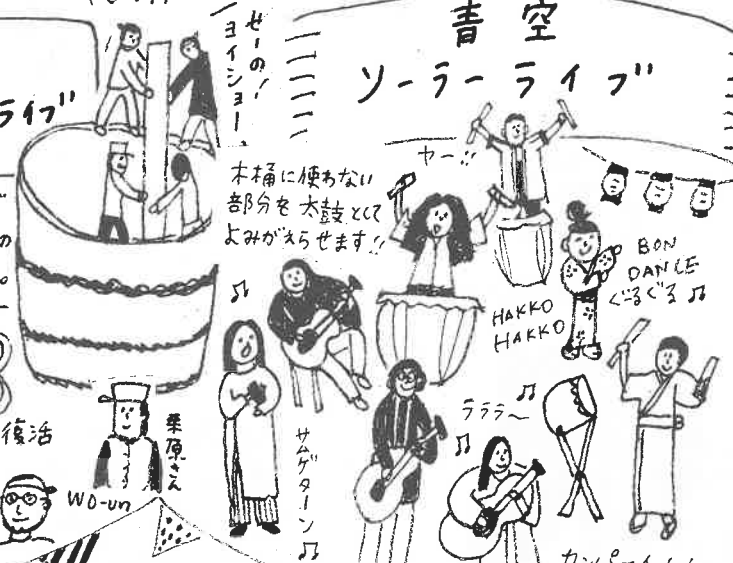 青空
ソーラーライブ
ライブ
せーの!
ヨイショー
ヤー!!
木桶に使わない
部分を太鼓として
よみがえらせます!!
BON
DANCE
ぐーるぐる♫
HAKKO
HAKKO
ラララ〜
サムゲターン
栗原さん
復活
WO-un